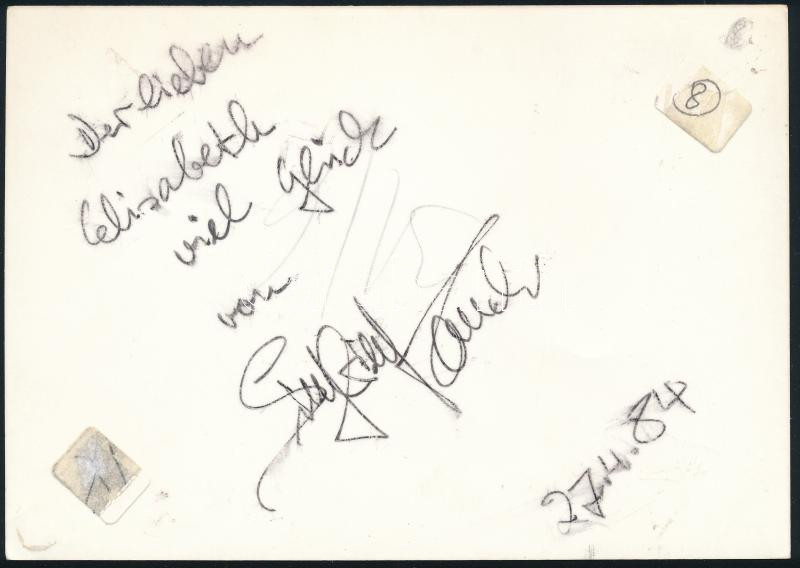 Der lieben
Elisabeth
viel Glück
von
27.4.84
8